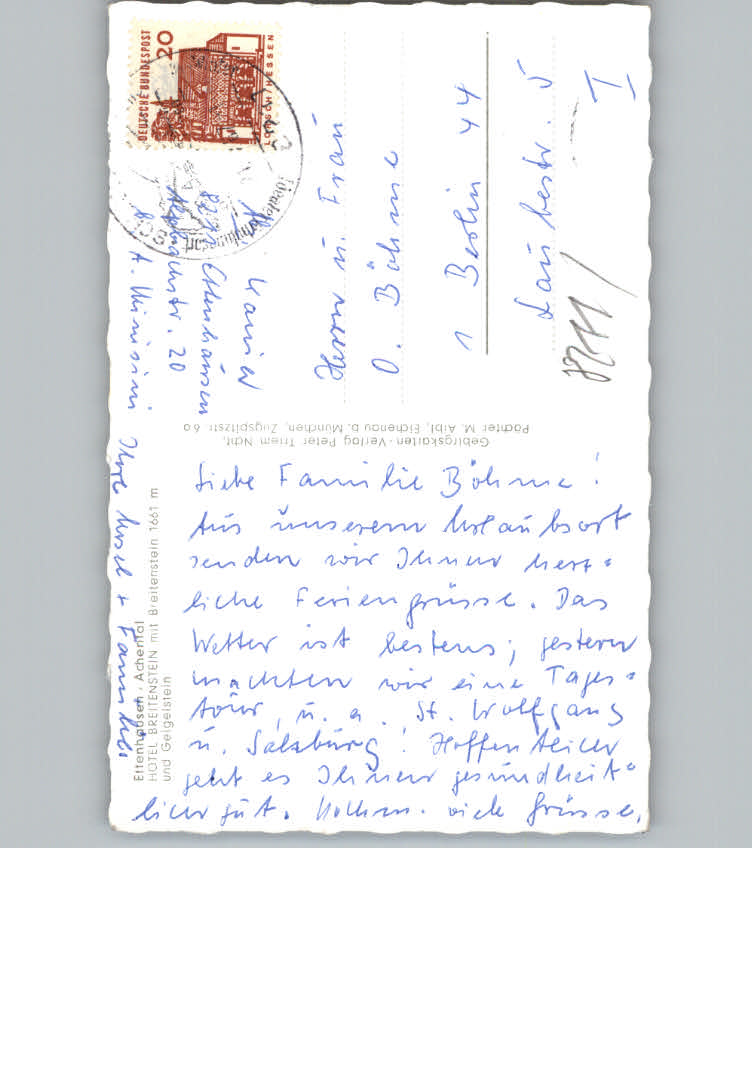 Liebe Familie Böhme!
Aus unserem Urlaubsort
senden wir Ihnen herz-
liche Feriengrüsse. Das
Wetter ist bestens; gestern
machten wir eine Tages-
tour, u. a. St. Wolfgang
u. Salzburg! Hoffentlich
geht es Ihnen gesundheit-
lich gut. Nochm. viele Grüsse,
Ihre Ursel + Familie
Herrn u. Frau
O. Böhme
1 Berlin 44
Laubestr. 5
I
Ettenhausen
20
Ettenhausen · Achental
HOTEL BREITENSTEIN mit Breitenstein 1661 m
und Geigelstein
Gebirgskarten-Verlag Peter Triem Nchf.
Pächter M. Aibl, Eichenau b. München, Zugspitzstr. 6a
DEUTSCHE BUNDESPOST
20
LORSCH/HESSEN